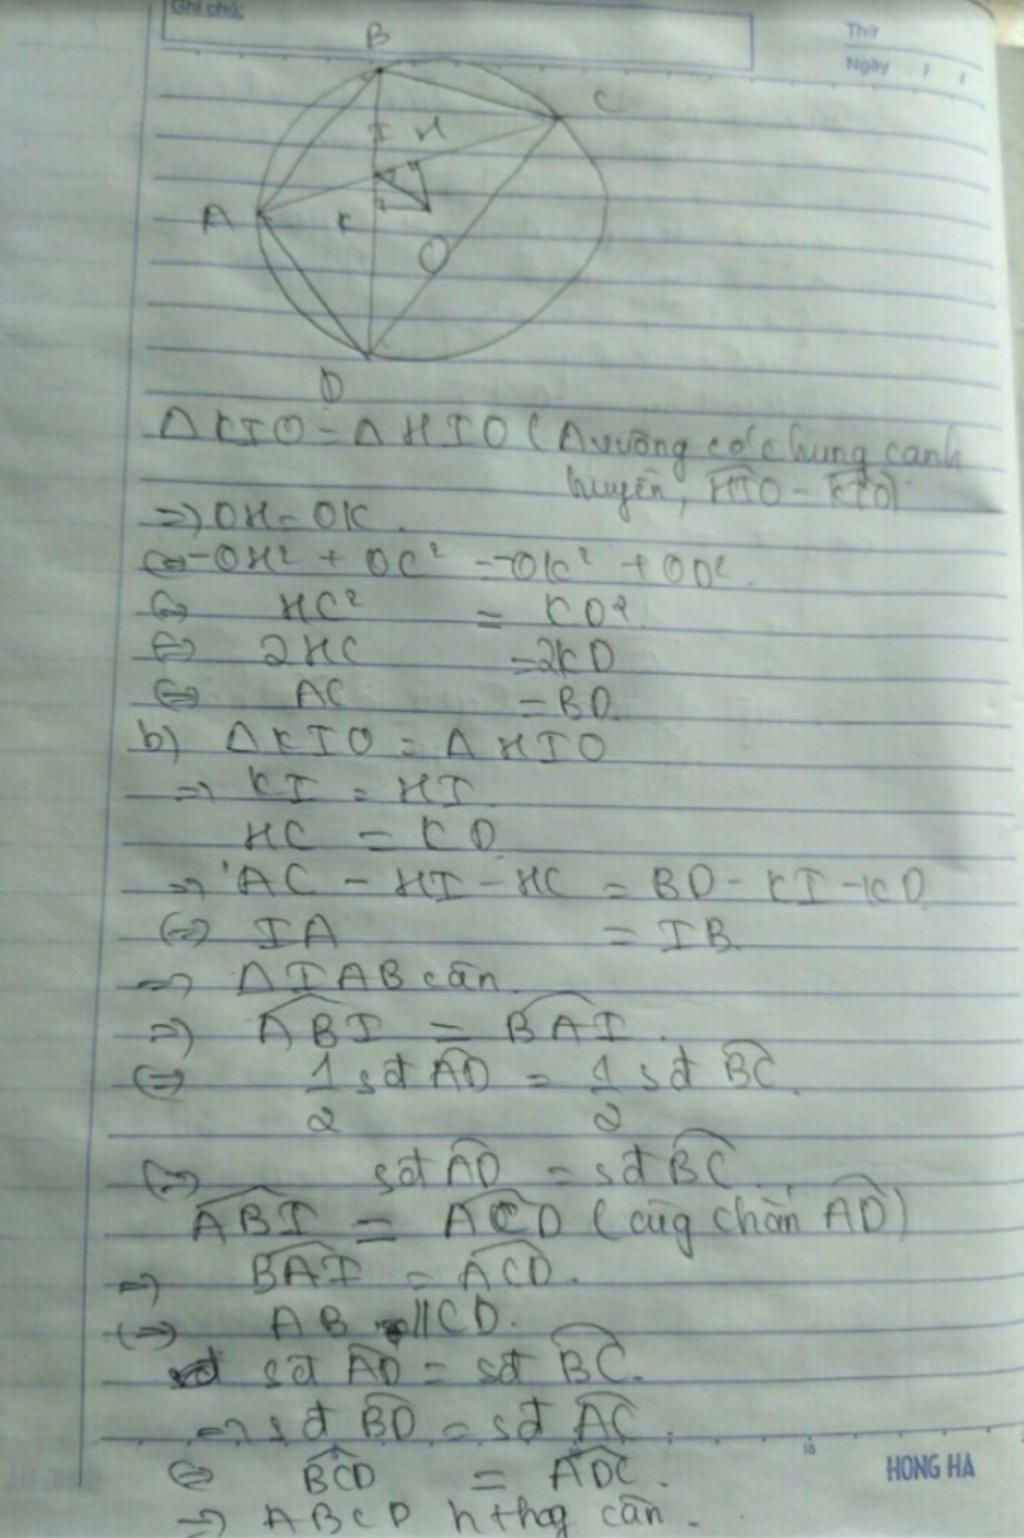 Ghi chú:
Thứ
Ngày / /
B
C
I H
A
K
O
D
ΔKIO = ΔHIO (Δ vuông có chung cạnh
huyền, HIO = KIO)
=> OH = OK.
<=> -OH² + OC² = -OK² + OD².
<=> HC² = KD².
<=> 2HC = 2KD
<=> AC = BD.
b) ΔKIO = ΔHIO
=> KI = HI.
HC = KD
=> AC - HI - HC = BD - KI - KD
<=> IA = IB.
=> ΔIAB cân.
=> ABI = BAI.
<=> 1/2 sđ AD = 1/2 sđ BC.
<=> sđ AD = sđ BC.
ABI = ACD (cùg chắn AD)
=> BAI = ACD.
<=> AB // CD.
sđ AD = sđ BC.
=> sđ BD = sđ AC.
<=> BCD = ADC.
=> ABCD h thag cân.
HONG HA